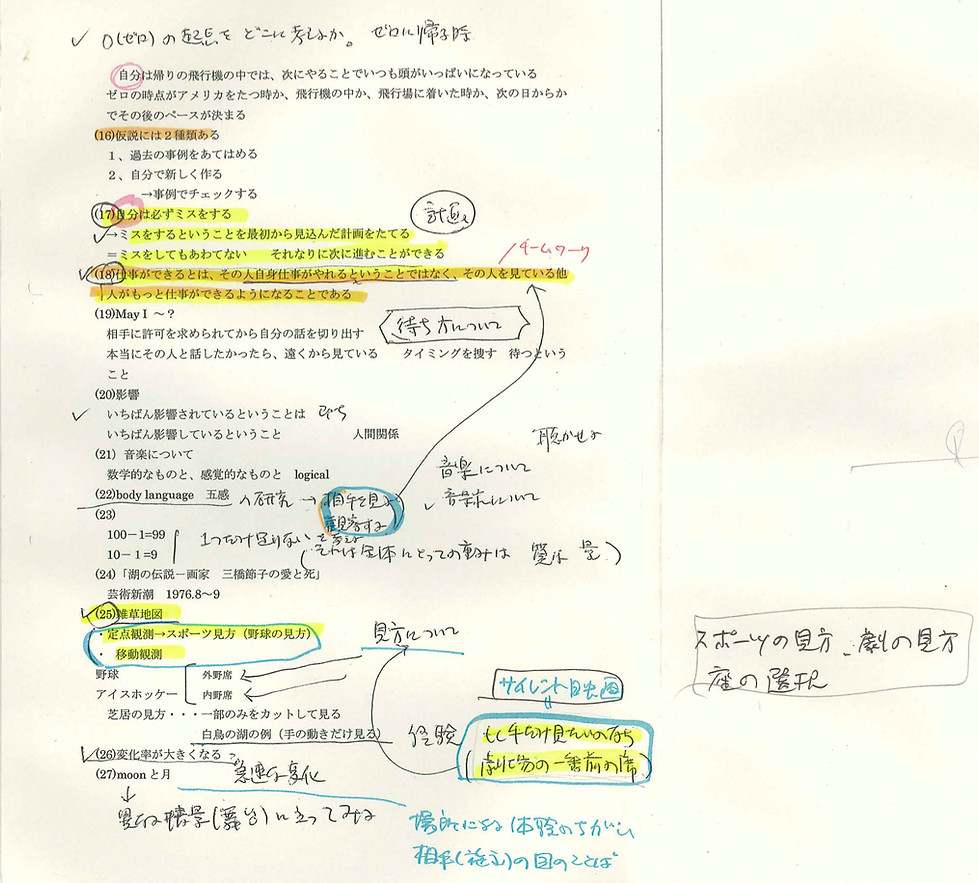 0(ゼロ)の起点をどこに考えるか。 ゼロに帰る時
自分は帰りの飛行機の中では、次にやることでいつも頭がいっぱいになっている
ゼロの時点がアメリカをたつ時か、飛行機の中か、飛行場に着いた時か、次の日からか
でその後のペースが決まる
(16)仮説には2種類ある
1、過去の事例をあてはめる
2、自分で新しく作る
→事例でチェックする
(17)自分は必ずミスをする
計画
→ミスをするということを最初から見込んだ計画をたてる
=ミスをしてもあわてない それなりに次に進むことができる
チームワーク
(18)仕事ができるとは、その人自身仕事がやれるということではなく、その人を見ている他
人がもっと仕事ができるようになることである
(19)May I ~?
待ち方について
相手に許可を求められてから自分の話を切り出す
本当にその人と話したかったら、遠くから見ている タイミングを捜す 待つという
こと
(20)影響
いちばん影響されているということは どっち
いちばん影響しているということ 人間関係
聴かせよ
(21) 音楽について
音楽について
数学的なものと、感覚的なものと logical
(22)body language 五感 の研究 → 相手を見る
観察する
(23)
100-1=99
10-1=9
1つだけ足りない
全体にとっての重みは 質は 量?
(24)「湖の伝説-画家 三橋節子の愛と死」
芸術新潮 1976.8~9
(25)雑草地図
・定点観測→スポーツ見方(野球の見方)
見方について
・ 移動観測
スポーツの見方、劇の見方
座の選択
野球 外野席
アイスホッケー 内野席
サイレント映画
芝居の見方・・・一部のみをカットして見る
白鳥の湖の例(手の動きだけ見る) 経験
もし手だけ見たいのなら
(劇場の一番前の席)
(26)変化率が大きくなる
急速な変化
(27)moonと月
異なる情景(舞台)に立ってみる
場所による体験のちがい
相手の国のことば